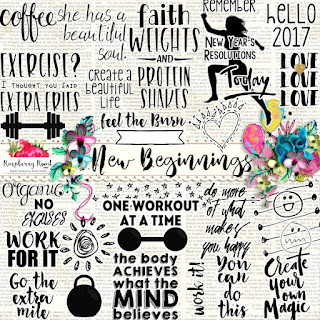 coffee
she has a
beautiful
soul.
faith
WEIGHTS
AND
PROTEIN
SHAKES
REMEMBER
NEW YEAR'S
RESOLUTIONS
today
hello
2017
EXERCISE?
I THOUGHT YOU SAID
EXTRA FRIES
create a
beautiful
life
LOVE
LOVE
LOVE
feel the Burn
Raspberry Road
New Beginnings
organic
NO
EXCUSES
WORK
FOR IT
Go the
extra
mile
ONE WORKOUT
AT A TIME
the body
ACHIEVES
what the
MIND
believes
do more
of what
makes
you happy
work it!
You
can
do
this
Create
Your own
Magic